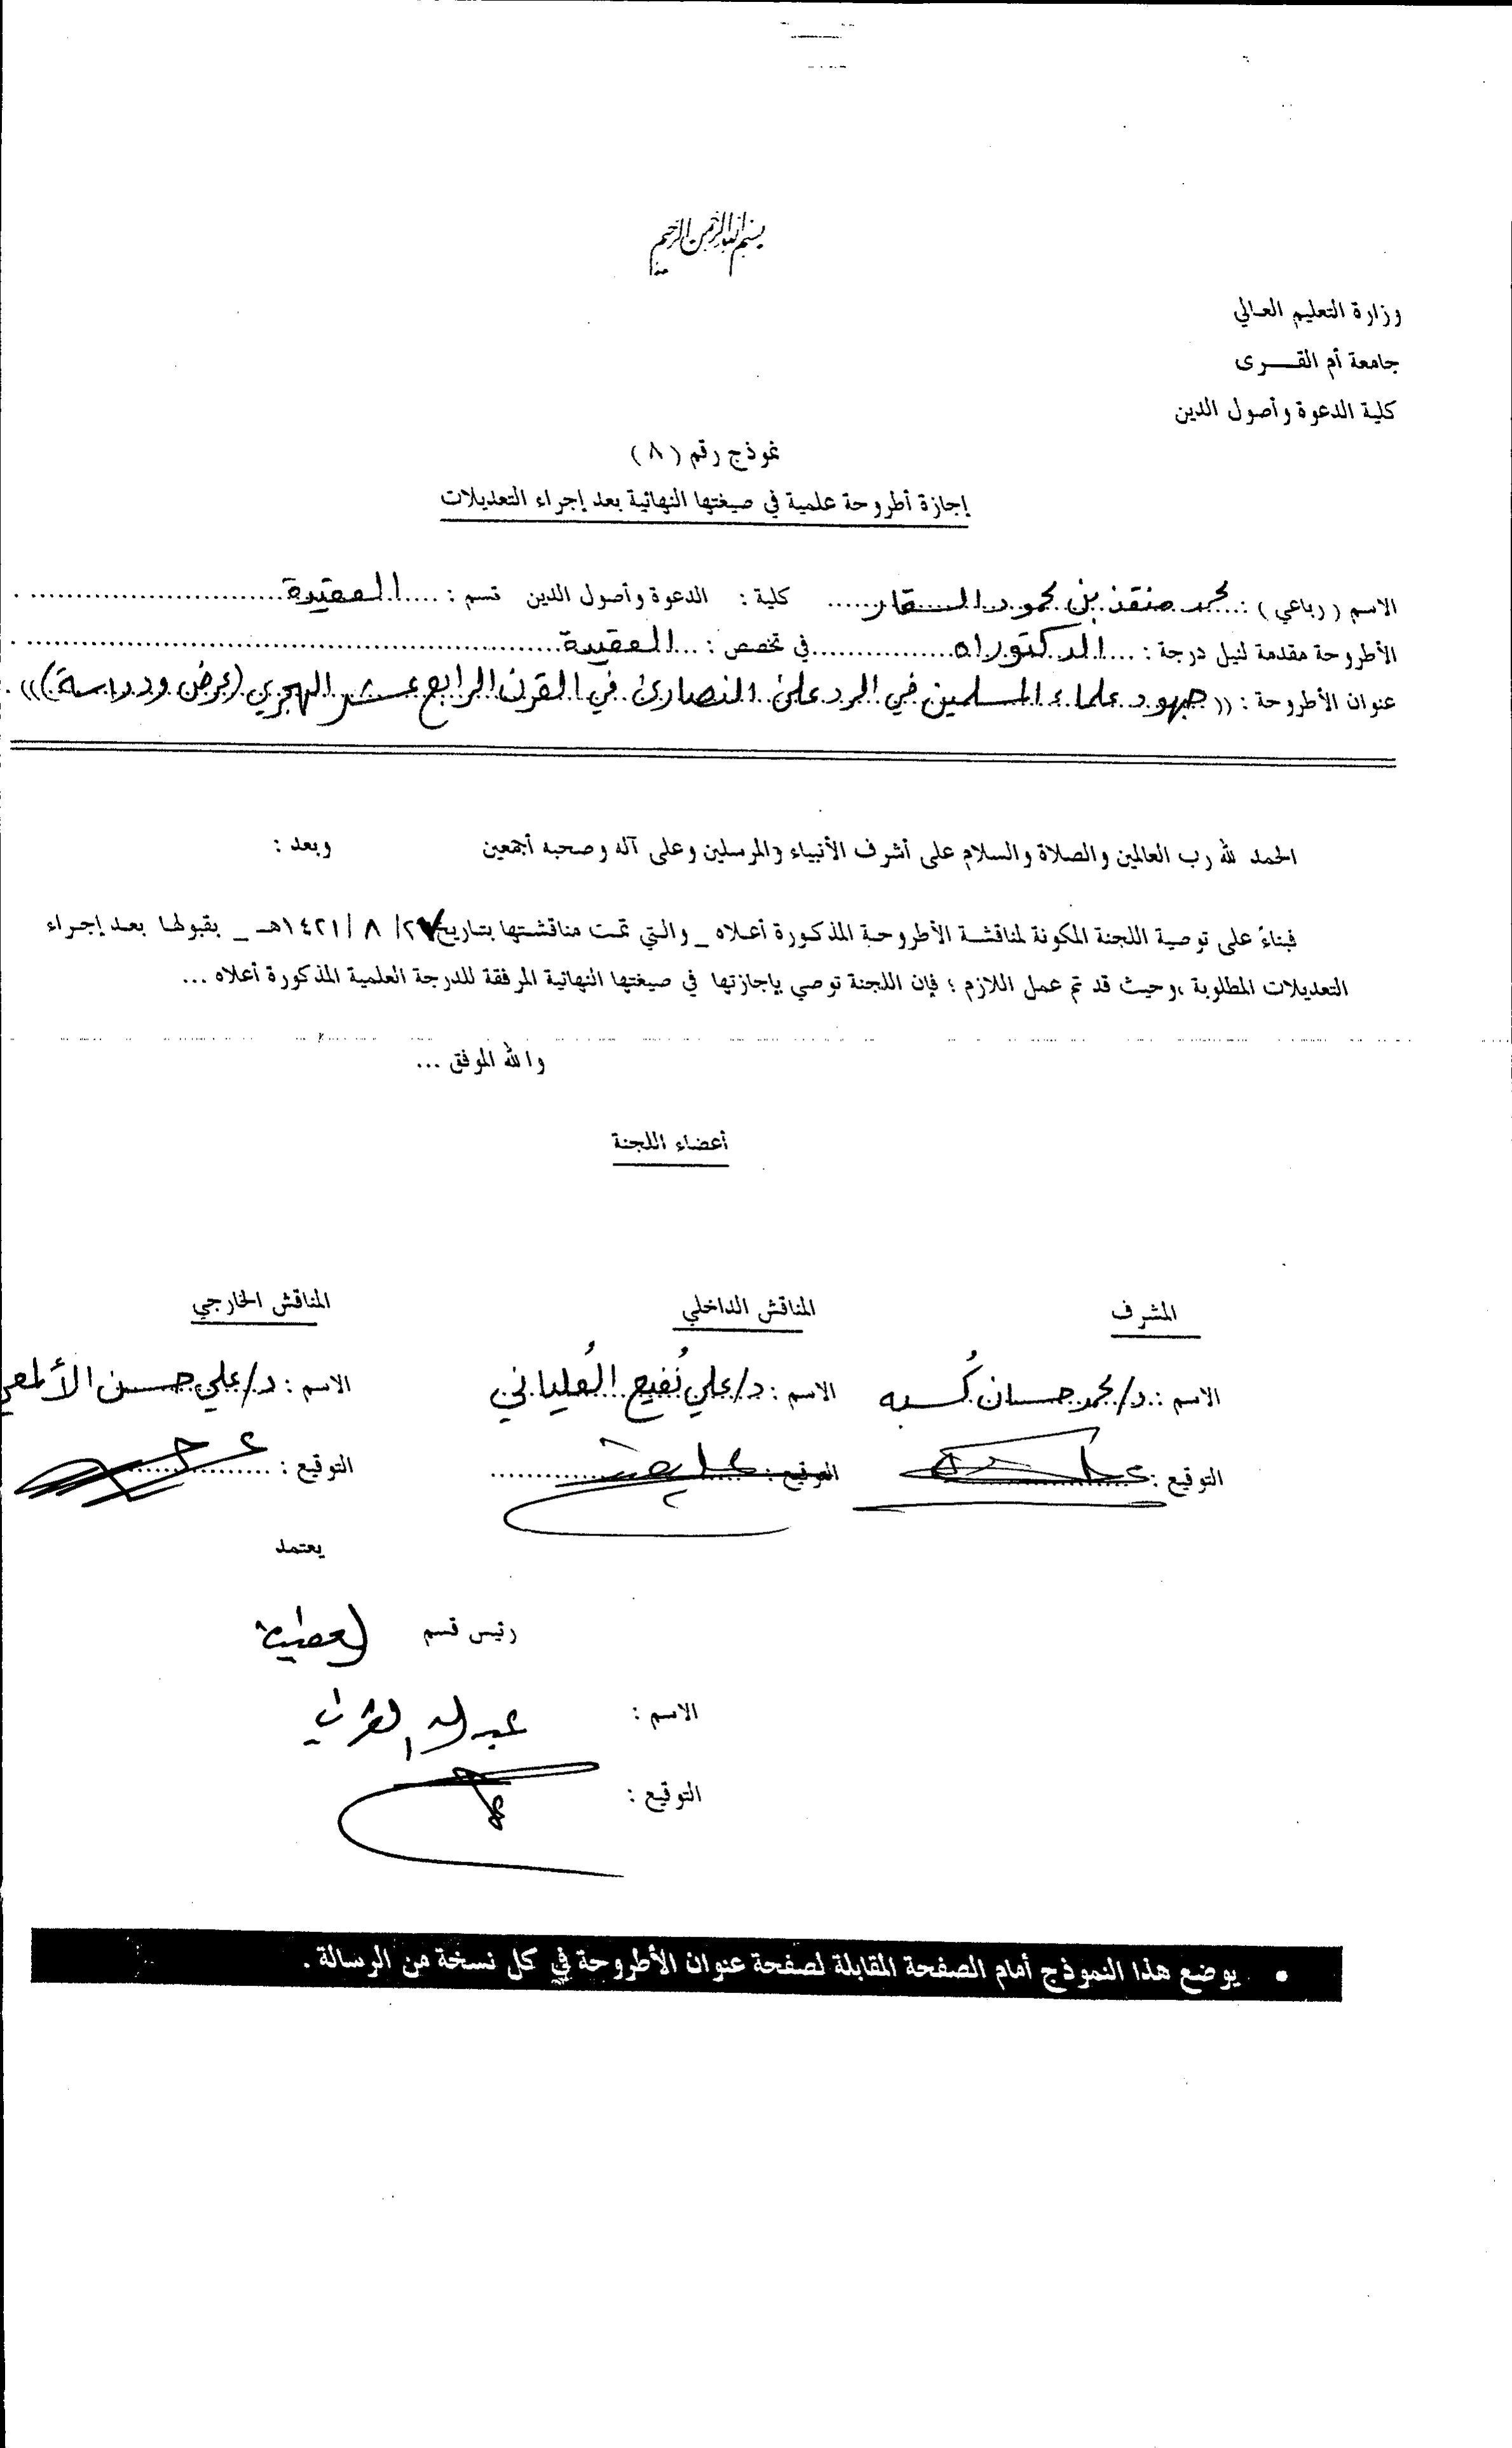 بسم الله الرحمن الرحيم
وزارة التعليم العالي
جامعة أم القــــرى
كلية الدعوة وأصول الدين
نموذج رقم ( ٨ )
إجازة أطروحة علمية في صيغتها النهائية بعد إجراء التعديلات
الاسم ( رباعي ) : محمد منقذ بن محمود السقار كلية : الدعوة وأصول الدين قسم : العقيدة
الأطروحة مقدمة لنيل درجة : الدكتوراه في تخصص : العقيدة
عنوان الأطروحة : (( جهود علماء المسلمين في الرد على النصارى في القرن الرابع عشر الهجري (عرض ودراسة) ))
الحمد لله رب العالمين والصلاة والسلام على أشرف الأنبياء والمرسلين وعلى آله وصحبه أجمعين وبعد :
فبناءً على توصية اللجنة المكونة لمناقشة الأطروحة المذكورة أعلاه _ والتي تمت مناقشتها بتاريخ ٢٧/ ٨ /١٤٢١هـ _ بقبولها بعد إجراء
التعديلات المطلوبة ،وحيث قد تم عمل اللازم ؛ فإن اللجنة توصي بإجازتها في صيغتها النهائية المرفقة للدرجة العلمية المذكورة أعلاه ...
والله الموفق ...
أعضاء اللجنة
المشرف المناقش الداخلي المناقش الخارجي
الاسم : د/محمد حسان كُسبه الاسم : د/علي نُفيع العُلياني الاسم : د/علي حسن الألمعي
التوقيع : التوقيع : التوقيع :
يعتمد
رئيس قسم العقيدة
الاسم : عبدالله القرني
التوقيع :
• يوضع هذا النموذج أمام الصفحة المقابلة لصفحة عنوان الأطروحة في كل نسخة من الرسالة .